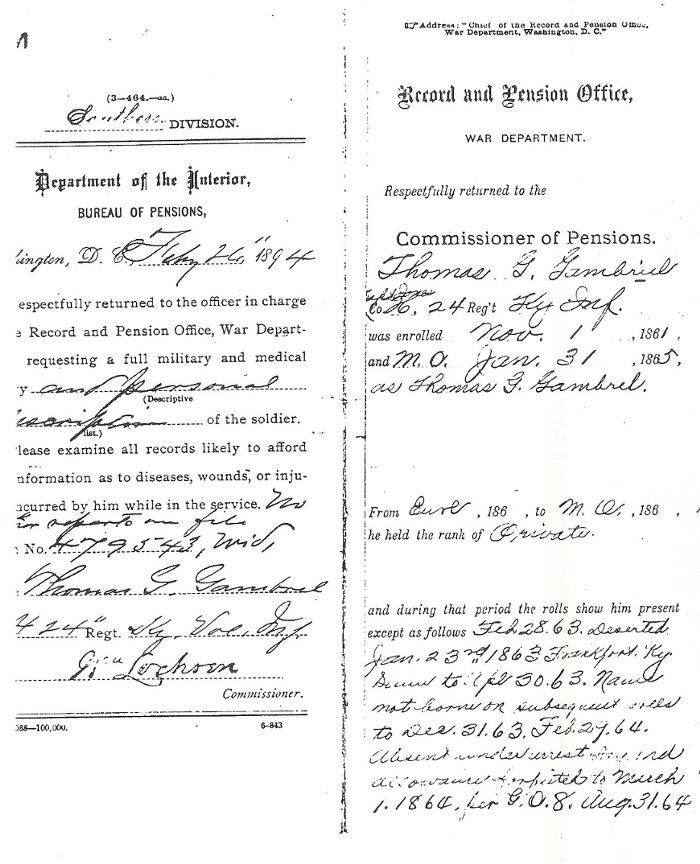 (3—464.—aa.)
Southern DIVISION.
Department of the Interior,
BUREAU OF PENSIONS,
ington, D. C. Feby 26", 1894
espectfully returned to the officer in charge
e Record and Pension Office, War Depart-
requesting a full military and medical
y and personal
(Descriptive
escription of the soldier.
list.)
lease examine all records likely to afford
nformation as to diseases, wounds, or inju-
ncurred by him while in the service. No
reports on file
No. 479543, Wid,
Thomas G. Gambrel
424" Regt. Ky. Vol. Inf
Wm Lochren
Commissioner.
088—100,000. 6-843
Address: "Chief of the Record and Pension Office,
War Department, Washington, D. C."
Record and Pension Office,
WAR DEPARTMENT.
Respectfully returned to the
Commissioner of Pensions.
Thomas G. Gambriel
Co. 24 Reg't Ky Inf.
was enrolled Nov. 1, 1861,
and M.O. Jan. 31, 1865,
as Thomas G. Gambrel.
From Enrl, 186 , to M.O., 186 ,
he held the rank of Private.
and during that period the rolls show him present
except as follows Feb. 28. 63. Deserted
Jan. 23rd, 1863 Frankfort. Ky.
Same to Apl 30. 63. Name
not borne on subsequent rolls
to Dec. 31. 63. Feb. 29. 64.
Absent under arrest pay and
allowance to March
1. 1864, per G.O. 8. Aug. 31. 64